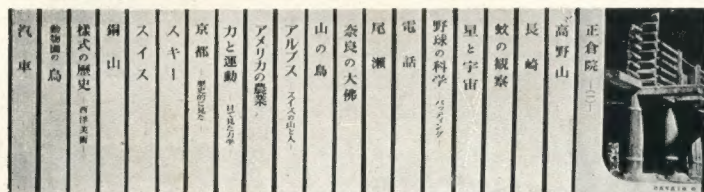 正倉院 —(一)—
高野山
長崎
蚊の観察
星と宇宙
野球の科学 バッティング
電話
尾瀬
奈良の大佛
山の鳥
アルプス スイスの山と人
アメリカの農業
力と運動 目で見た力学
京都 —歴史的に見た—
スキー
スイス
銅山
様式の歴史 西洋美術—
動物園の鳥
汽車